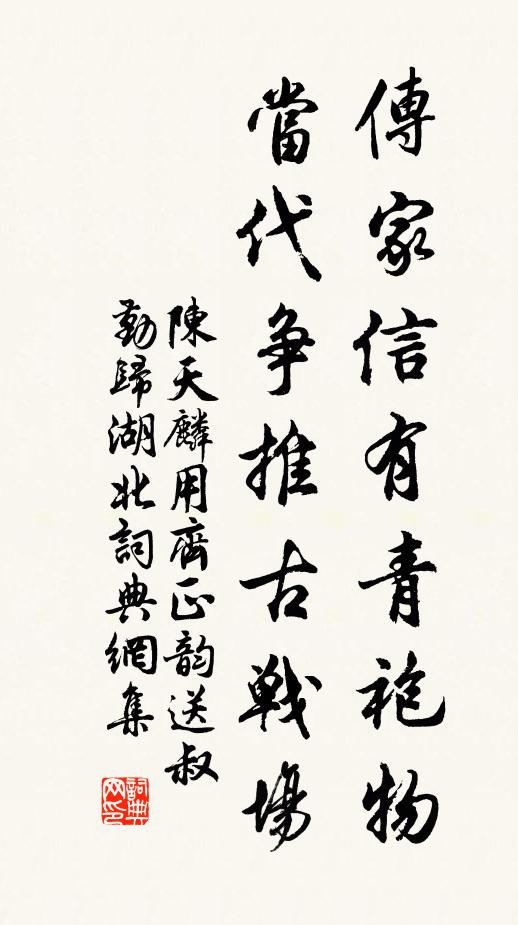 傳家信有青袍物
當代爭推古戰場
陳天麟用齊正韵送叔
勤歸湖北詞典網集
詞典
网印